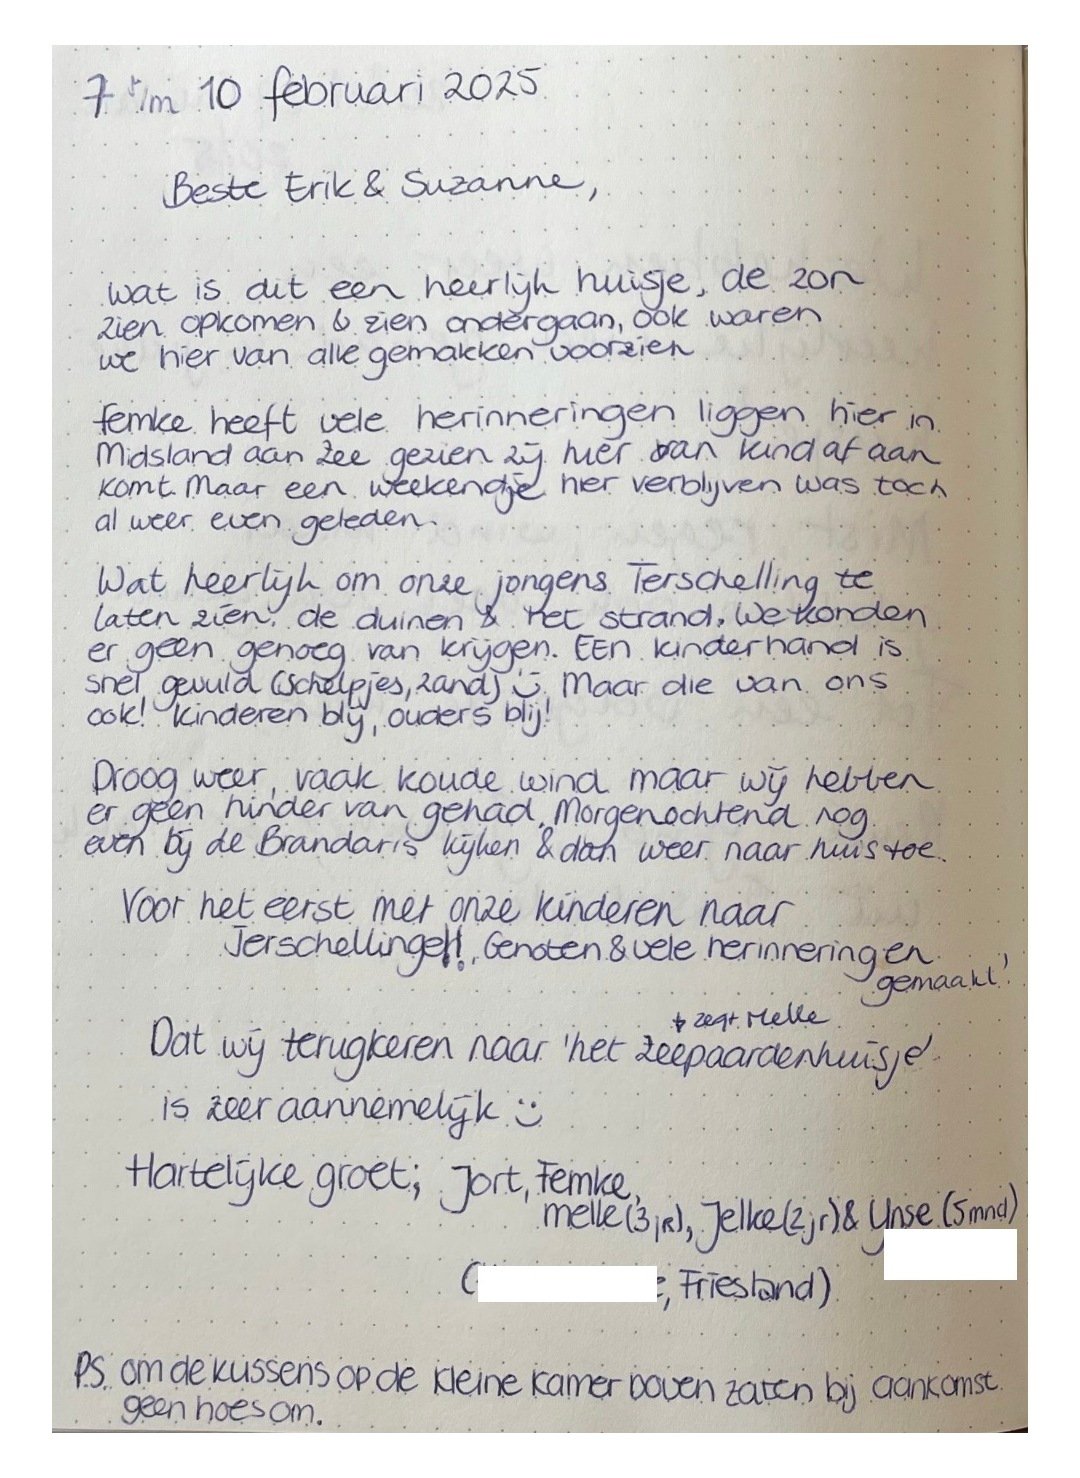 7 t/m 10 februari 2025
Beste Erik & Suzanne,
wat is dit een heerlijk huisje, de zon
zien opkomen & zien ondergaan, ook waren
we hier van alle gemakken voorzien
femke heeft vele herinneringen liggen hier in
Midsland aan Zee gezien zij hier van kind af aan
komt. Maar een weekendje hier verblijven was toch
al weer even geleden.
Wat heerlijk om onze jongens Terschelling te
laten zien. de duinen & het strand. We konden
er geen genoeg van krijgen. EEn kinderhand is
snel gevuld (schelpjes, zand) :) Maar die van ons
ook! kinderen blij, ouders blij!
Droog weer, vaak koude wind maar wij hebben
er geen hinder van gehad. Morgenochtend nog
even bij de Brandaris kijken & dan weer naar huis toe.
Voor het eerst met onze kinderen naar
Terschelling!! Genoten & vele herinneringen
gemaakt!
↳ zegt Melle
Dat wij terugkeren naar 'het zeepaardenhuisje'
is zeer aannemelijk :)
Hartelijke groet; Jort, Femke,
melle (3 jr), Jelke (2 jr) & Ynse (5 mnd)
(e, Friesland)
PS. om de kussens op de kleine kamer boven zaten bij aankomst
geen hoes om.